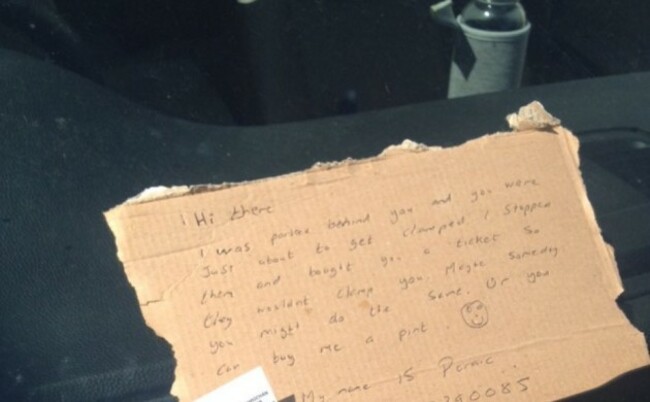 Hi there
I was parked behind you and you were
Just about to get clamped I stopped
them and bought you a ticket so
they wouldnt clamp you. Maybe someday
you might do the same. Or you
can buy me a pint.
My name is
280085